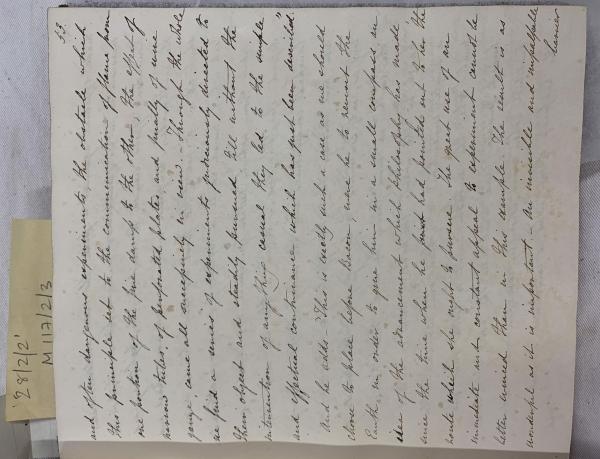 33
and often dangerous experiments, the obstacle which
this principle set to the communication of flame from
one portion of the fire damp to the other. The effect of
narrow tubes, of perforated plates and finally of wire
gauze came all successively in view. Through the whole
we find a series of experiments judiciously directed to
their object and steadily pursued till without the
intervention of anything casual they led to the simple
and effectual contrivance which has just been described"
And he adds "This is exactly such a case as we should
chose to place before Bacon, were he to revisit the
Earth in order to give him in a small compass an
idea of the advancement which philosophy has made
since the time when he had pointed out to her the
route which she ought to pursue. The great use of an
immediate and constant appeal to experiment cannot be
better evinced than in this example. The result is as
wonderful as it is important - An invisible and impalpable
barrier
28/2/2'
M 117/2/3